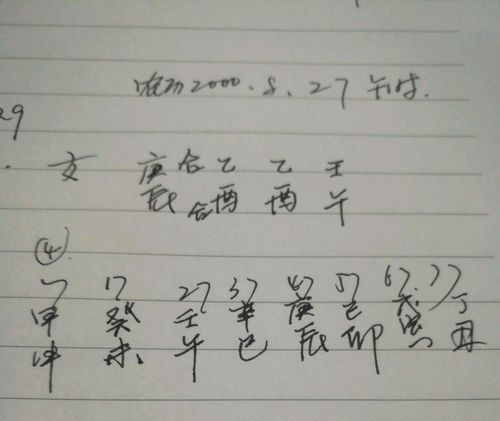 农历2000.8.27午时.
29
女 庚合乙 乙 壬
辰合酉 酉 午
④
7 17 27 37 47 57 67 77
甲 癸 壬 辛 庚 己 戊 丁
申 未 午 巳 辰 卯 寅 丑